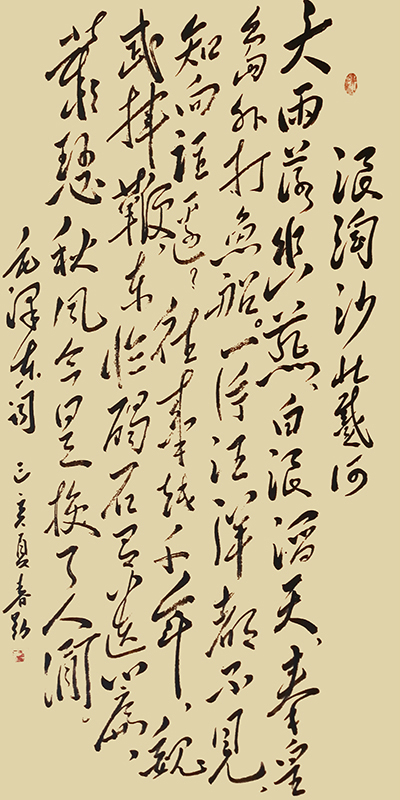 浪淘沙北戴河
大雨落幽燕白浪滔天秦皇
岛外打魚船一片汪洋都不見
知向谁边往事越千年魏
武挥鞭东临碣石有遗篇
萧瑟秋风今是换了人间
毛泽东词 己亥夏春